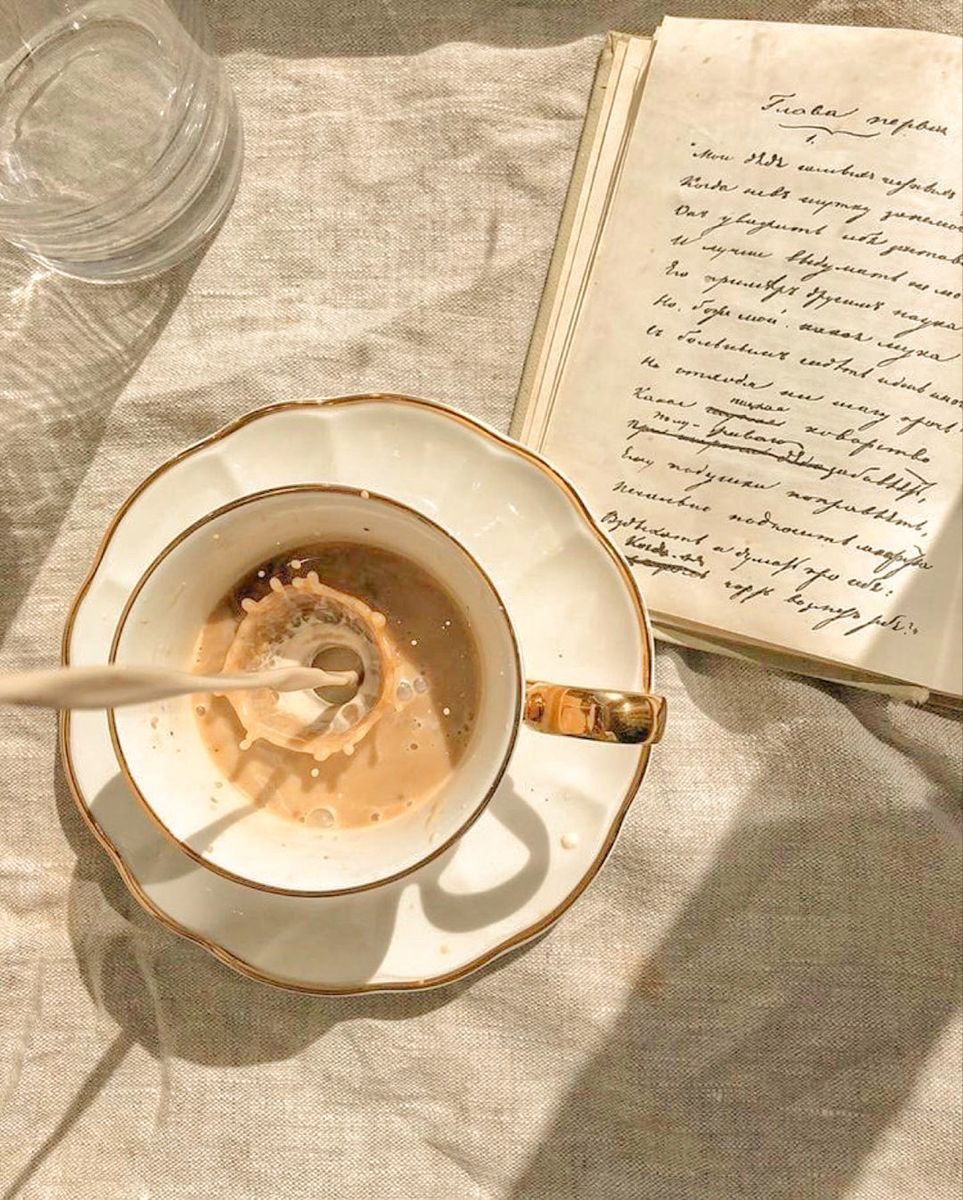 Глава первая
1.
"Мой дядя самыхъ честныхъ
Когда не въ шутку занемог
Онъ уважать себя застав
И лучше выдумать не мо
Его примѣръ другимъ наука
Но, боже мой! какая мука
Съ больнымъ сидѣть и день и но
Не отходя ни шагу прочь
низкое
Какое коварство
Полу-живаго
забавлять,
Ему подушки поправлять,
Печально подносить лекарства
Вздыхать и думать про себя:
Когда же
чортъ возьметъ тебя?"